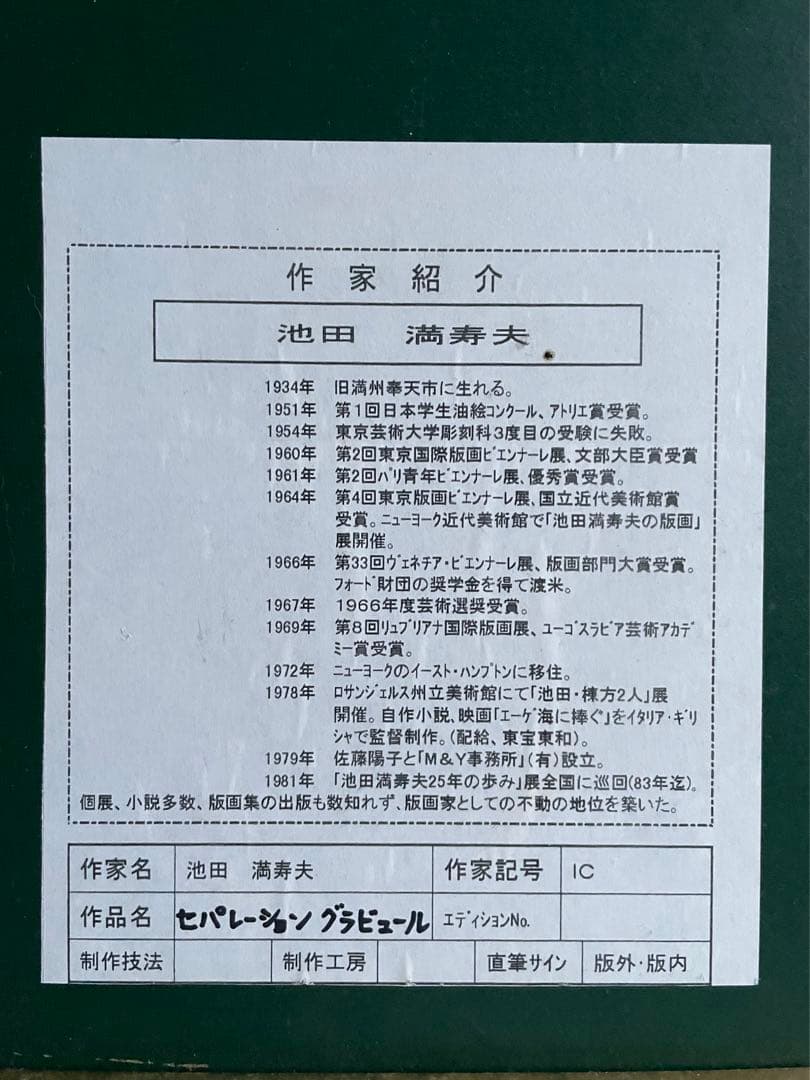 作家紹介
池田　満寿夫
1934年　旧満州奉天市に生れる。
1951年　第1回日本学生油絵ｺﾝｸｰﾙ、ｱﾄﾘｴ賞受賞。
1954年　東京芸術大学彫刻科3度目の受験に失敗。
1960年　第2回東京国際版画ﾋﾞｴﾝﾅｰﾚ展、文部大臣賞受賞
1961年　第2回ﾊﾟﾘ青年ﾋﾞｴﾝﾅｰﾚ展、優秀賞受賞。
1964年　第4回東京版画ﾋﾞｴﾝﾅｰﾚ展、国立近代美術館賞
受賞。ﾆｭｰﾖｰｸ近代美術館で「池田満寿夫の版画」
展開催。
1966年　第33回ｳﾞｪﾈﾁｱ・ﾋﾞｴﾝﾅｰﾚ展、版画部門大賞受賞。
ﾌｫｰﾄﾞ財団の奨学金を得て渡米。
1967年　1966年度芸術選奨受賞。
1969年　第8回ﾘｭﾌﾞﾘｱﾅ国際版画展、ﾕｰｺﾞｽﾗﾋﾞｱ芸術ｱｶﾃﾞ
ﾐｰ賞受賞。
1972年　ﾆｭｰﾖｰｸのｲｰｽﾄ・ﾊﾝﾌﾟﾄﾝに移住。
1978年　ﾛｻﾝｼﾞｪﾙｽ州立美術館にて「池田・棟方2人」展
開催。自作小説、映画「ｴｰｹﾞ海に捧ぐ」をｲﾀﾘｱ・ｷﾞﾘ
ｼｬで監督制作。(配給、東宝東和)。
1979年　佐藤陽子と「M&Y事務所」(有)設立。
1981年　「池田満寿夫25年の歩み」展全国に巡回(83年迄)。
個展、小説多数、版画集の出版も数知れず、版画家としての不動の地位を築いた。
作家名　池田　満寿夫　作家記号　IC
作品名　セパレーション グラビュール　ｴﾃﾞｨｼｮﾝNo.
制作技法　制作工房　直筆サイン　版外・版内